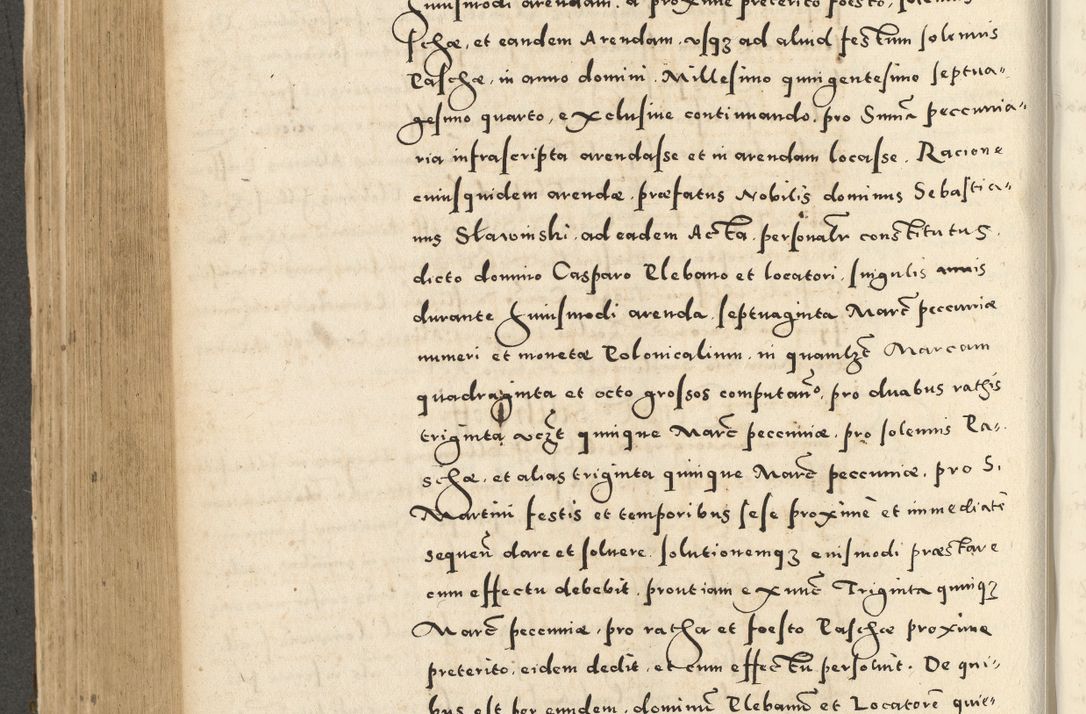 huiusmodi arendam, a proxime preterito foesto, solennis
schæ, et eandem Arendam, vsqȝ ad aliud festum solennis
Paschæ, in anno domini. Millesimo quingentesimo septua=
gesimo quarto, exclusiue continuando, pro Sum̃a peccunia=
ria infrascripta arendasse et in arendam locasse. Racione
cuiusquidem arendæ, præfatus Nobilis dominus Sebastia=
nus Sławinski, ad eadem Acta, personalr̃ constitutus,
dicto domino Casparo Plebano et locatori, singulis annis
durante huiusmodi arenda, septuaginta Marc̃ peccuniæ
numeri et monetæ Polonicalium, in quamlȝt Marcam
quadraginta et octo grossos computañ, pro duabus rathis
triginta vcȝt quinque Marc̃ peccuniæ, pro solennis Pa=
schæ, et alias triginta quinque Marc̃ peccuniæ, pro S.
Martini festis et temporibus sese proximè et immediatè
sequeñ dare et soluere, solutionemqȝ eiusmodi præstare
cum effectu debebit, prout iam ex nunc̃ Triginta quinqȝ
Marc̃ peccuniæ, pro ratha et foesto Paschæ proxime
preterito, eidem dedit, et cum effectu persoluit. De qui=
bus est per eundem, dominũ Plebanũ et Locatorẽ quie=